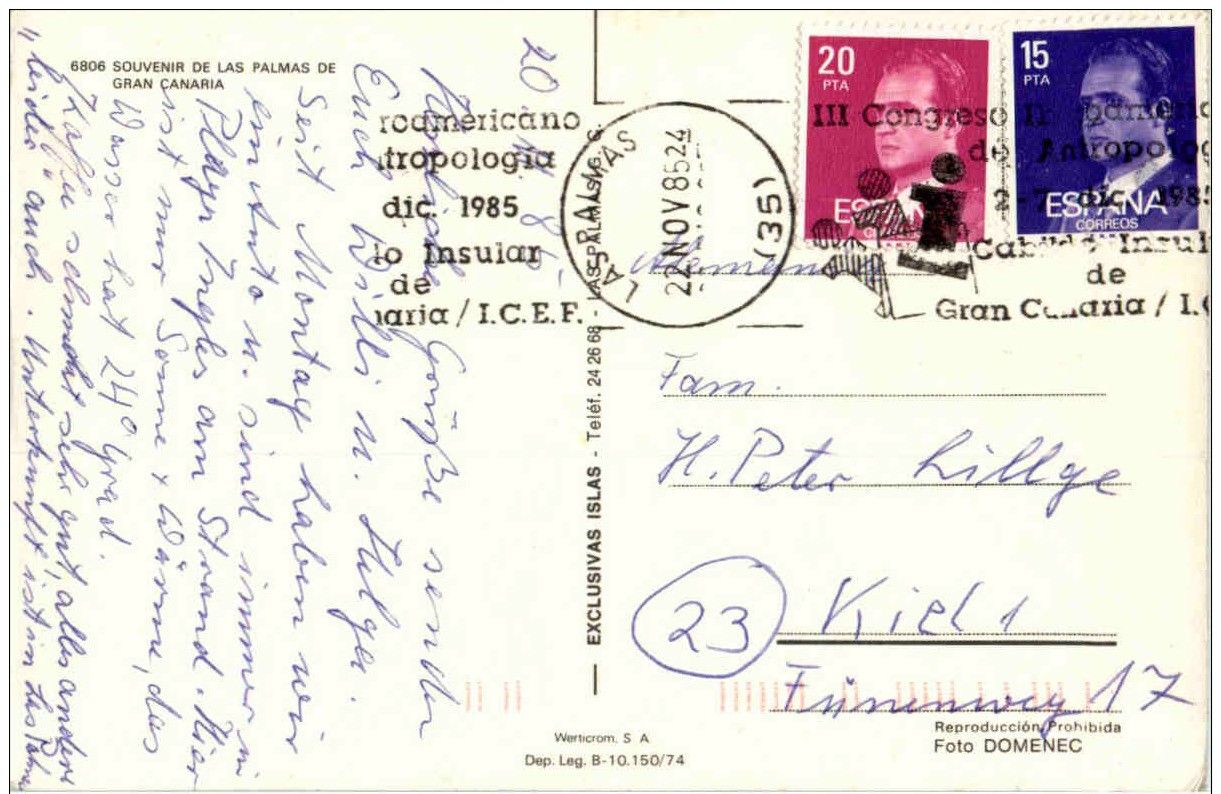 6806 SOUVENIR DE LAS PALMAS DE
GRAN CANARIA
20. 11. 85
Herzliche Grüße senden
Euch Willi u. Helga.
Seit Montag haben wir
ein Auto u. sind immer in
Playa Ingles am Strand. Hier
ist nur Sonne & Wärme, das
Wasser hat 24° Grad.
Kaffee schmeckt sehr gut, alles andere
"leider" auch. Unterkunft ist in Las Palmas
EXCLUSIVAS ISLAS - Teléf. 24 26 68 - LAS PALMAS
Werticrom, S A
Dep. Leg. B-10.150/74
roamericano
tropología
dic. 1985
lo Insular
de
naria / I.C.E.F.
LAS PALMAS G.C.
22 NOV 85 24
(35)
20
PTA
ESPAÑA
15
PTA
ESPAÑA
CORREOS
III Congreso
de Antropolog
2-7 dic. 1985
Cabildo Insul
de
Gran Canaria / I.C
Alemania
Fam.
H. Peter Lillge
23 Kiel 1
Fünenweg 17
Reproducción Prohibida
Foto DOMENEC